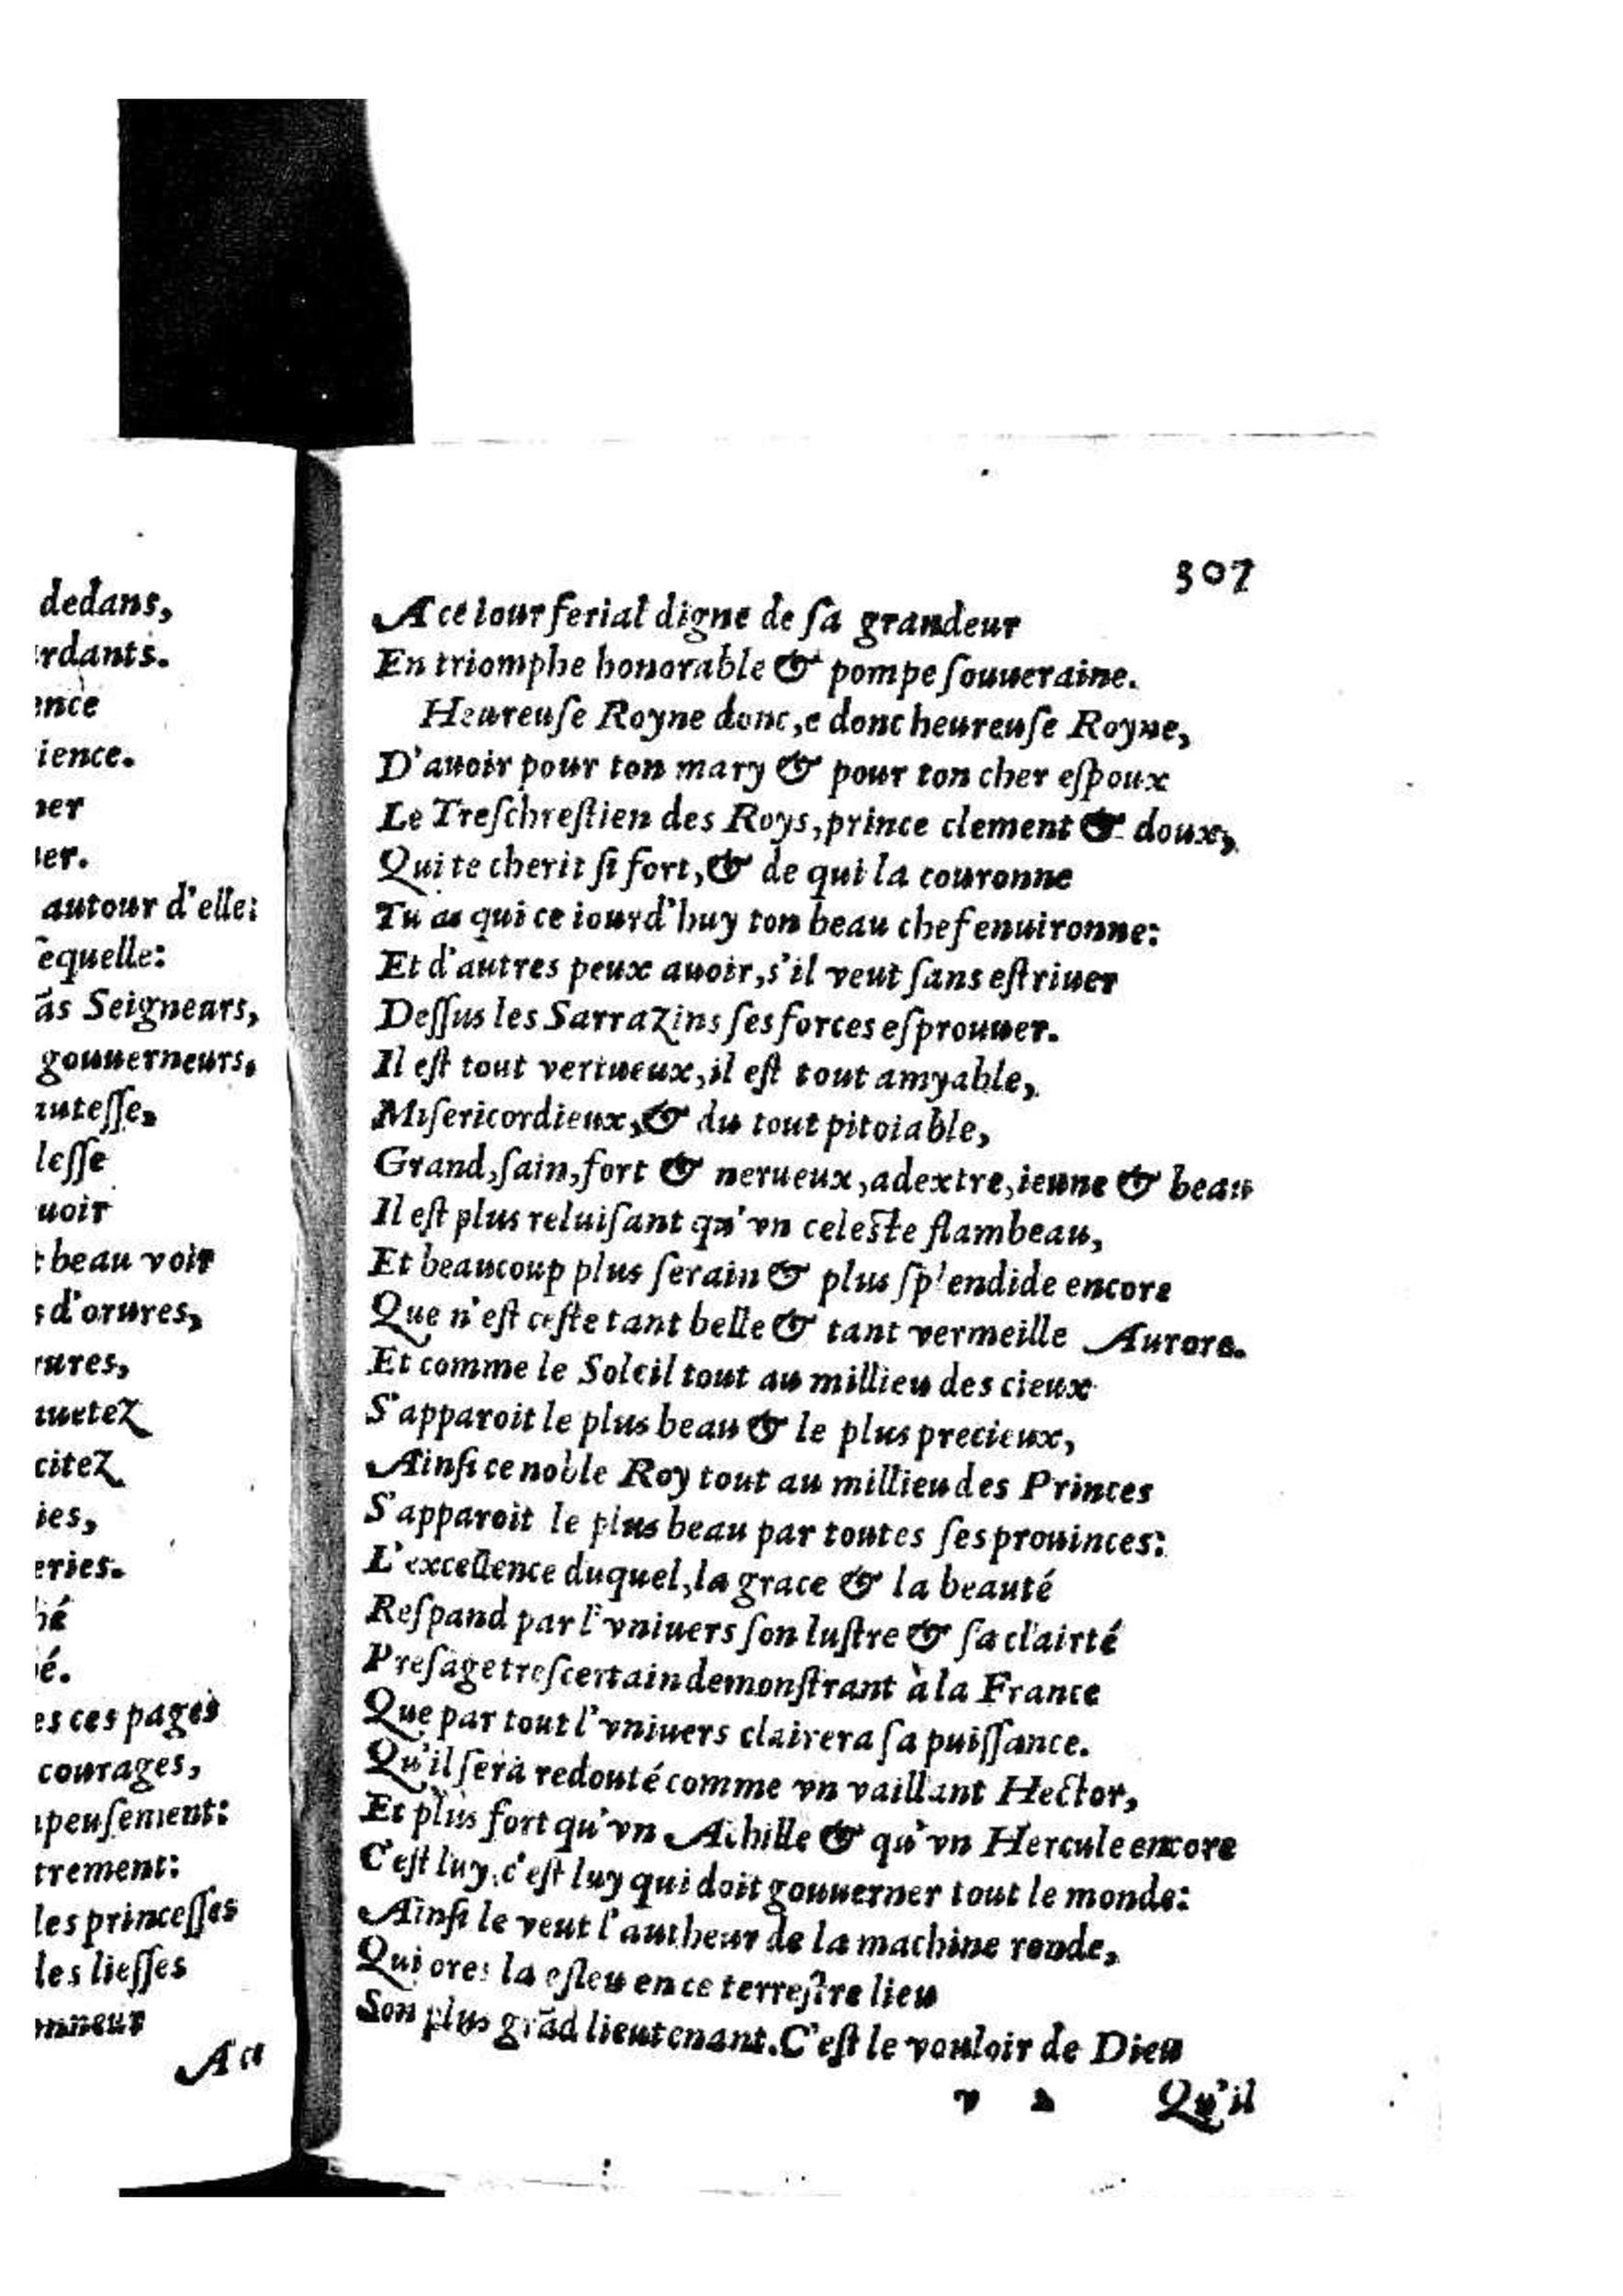 dedans,
rdants.
ence
ience.
ner
ner.
autour d'elle:
sequelle:
ãs Seignears,
gouuerneurs.
auteſſe,
leſſe
uoir
beau voir
s d'orures,
rures,
quetez
citez
ies,
eries.
bé
é.
es ces pages
courages,
peuſement:
trement:
les princeſſes
les lieſſes
onneur
Aa
307
A ce Iour ferial digne de ſa grandeur
En triomphe honorable & pompe ſouueraine.
Heureuſe Royne donc, e donc heureuſe Royne,
D'auoir pour ton mary & pour ton cher eſpoux
Le Treſchreſtien des Roys, prince clement & doux,
Qui te cherit ſi fort, & de qui la couronne
Tu as qui ce iourd'huy ton beau chef enuironne:
Et d'autres peux auoir, s'il veut ſans eſtriuer
Deſſus les Sarrazins ſes forces eſprouuer.
Il eſt tout vertueux, il eſt tout amyable,
Miſericordieux, & du tout pitoiable,
Grand, ſain, fort & nerueux, adextre, ieune & beau
Il eſt plus reluiſant qu'vn celeſte flambeau,
Et beaucoup plus ſerain & plus ſplendide encore
Que n'eſt ceſte tant belle & tant vermeille Aurore.
Et comme le Soleil tout au millieu des cieux
S'apparoit le plus beau & le plus precieux,
Ainſi ce noble Roy tout au millieu des Princes
S'apparoit le plus beau par toutes ſes prouinces:
L'excellence duquel, la grace & la beauté
Reſpand par l'vniuers ſon luſtre & ſa clairté
Preſage treſcertain demonſtrant à la France
Que par tout l'vniuers clairera ſa puiſſance.
Qu'il ſera redouté comme vn vaillant Hector,
Et plus fort qu'vn Achille & qu'vn Hercule encore
C'eſt luy, c'eſt luy qui doit gouuerner tout le monde:
Ainſi le veut l'autheur de la machine ronde,
Qui ores la eſleu en ce terreſtre lieu
Son plus grãd lieutenant. C'eſt le vouloir de Dieu
v 2 Qu'il